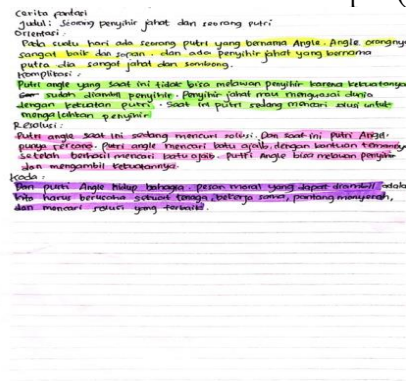 Cerita fantasi
Judul: Seorang penyihir jahat dan seorang putri
Orientasi:
Pada suatu hari ada seorang putri yang bernama Angle. Angle orangnya
sangat baik dan sopan. dan ada penyihir jahat yang bernama
putra dia sangat jahat dan sombong.
Komplikasi:
Putri angle yang saat ini tidak bisa melawan penyihir karena kekuatannya
sudah diambil penyihir. Penyihir jahat mau menguasai dunia
dengan kekuatan putri. Saat ini putri sedang mencari solusi untuk
mengalahkan penyihir
Resolusi:
Putri angle saat ini sedang mencari solusi. Dan saat ini Putri Angel
punya rencana. Putri angle mencari batu ajaib. dengan bantuan temannya
setelah berhasil mencari batu ajaib. Putri Angle bisa melawan penyihir
dan mengambil kekuatannya.
Koda:
Dan putri Angle hidup bahagia. pesan moral yang dapat diambil adala
kita harus berusaha sekuat tenaga, bekerja sama, pantang menyerah,
dan mencari solusi yang terbaik.